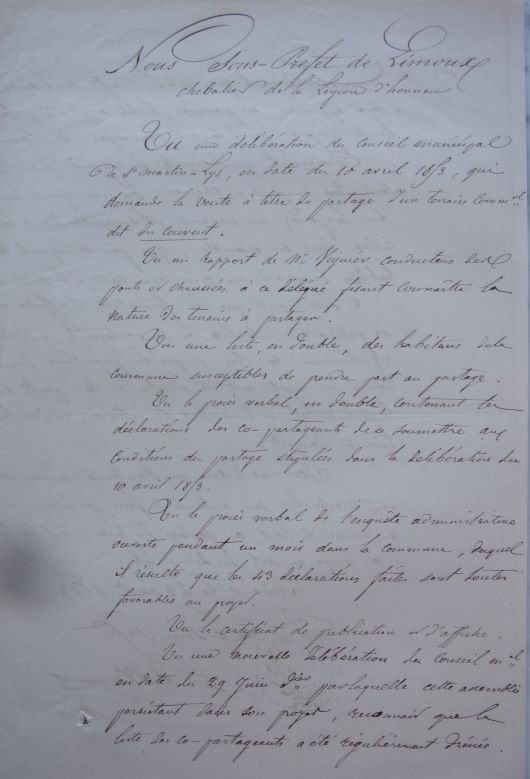 Nous Sous-Préfet de Limoux
chevalier de la Légion d'honneur
Vu une délibération du Conseil municipal
de St martin-Lys, en date du 10 avril 1853, qui
demande la vente à titre de partage d'un terrain commal
dit du couvent.
Vu un rapport de Mr conducteur des
ponts et chaussées à ce délégué fesant connaître la
nature des terrains à partager.
Vu une liste, en double, des habitans de la
commune susceptibles de prendre part au partage.
Vu le procès verbal, en double, contenant les
déclarations des co-partageants de se soumettre aux
conditions du partage stipulées dans la délibération du
10 avril 1853.
Vu le procès verbal de l'enquête administrative
ouverte pendant un mois dans la commune, duquel
il résulte que les 43 déclarations faites sont toutes
favorables au projet.
Vu le certificat de publication et d'affiche.
Vu une nouvelle délibération du Conseil mal
en date du 29 Juin dier par laquelle cette assemblée
persistant dans son projet, reconnait que la
liste des co-partageants a été régulièrement dressée.